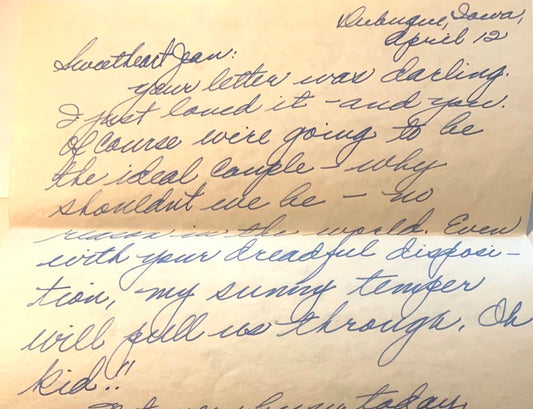 Dubuque, Iowa,
April 12
Sweetheart Jean:
your letter was darling.
I just loved it - and you.
Of course we're going to be
the ideal couple - why
shouldn't we be - no
reason in the world. Even
with your dreadful disposi-
tion, my sunny temper
will pull us through. Oh
kid!!
today